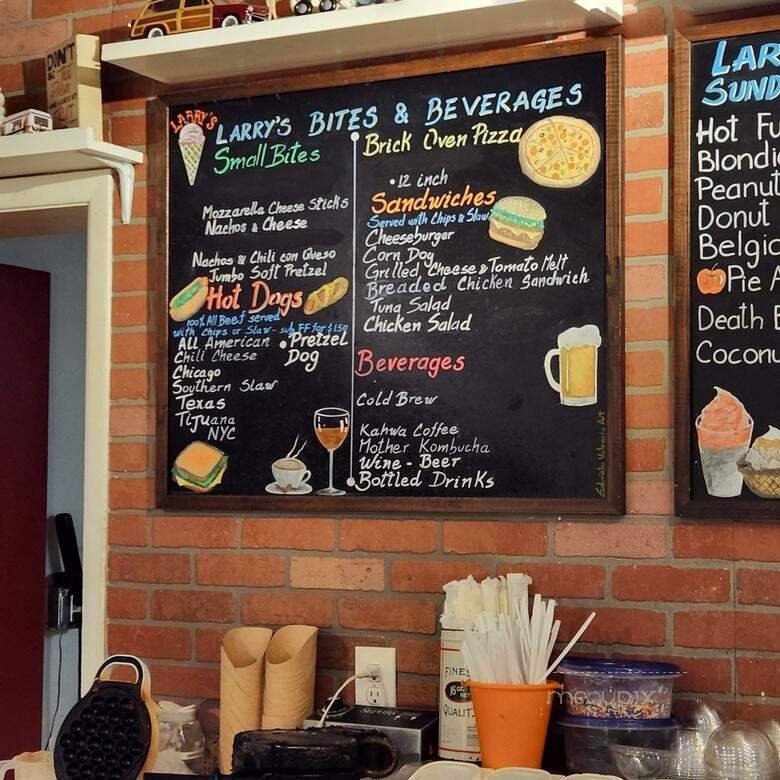 LARRY'S
LARRY'S BITES & BEVERAGES
Small Bites
Mozzarella Cheese Sticks
Nachos & Cheese
Nachos & Chili con Queso
Jumbo Soft Pretzel
Hot Dogs
100% All Beef served
with Chips or Slaw - sub FF for $1.50
All American
Chili Cheese
Chicago
Southern Slaw
Texas
Tijuana
NYC
• Pretzel
Dog
Brick Oven Pizza
• 12 inch
Sandwiches
Served with Chips & Slaw
Cheeseburger
Corn Dog
Grilled Cheese & Tomato Melt
Breaded Chicken Sandwich
Tuna Salad
Chicken Salad
Beverages
Cold Brew
Kahwa Coffee
Mother Kombucha
Wine - Beer
Bottled Drinks
LAR
SUND
Hot Fu
Blondi
Peanut
Donut
Belgic
Pie A
Death B
Coconu
DON'T
FINES
16 OZ
NET
QUALIT
menupix